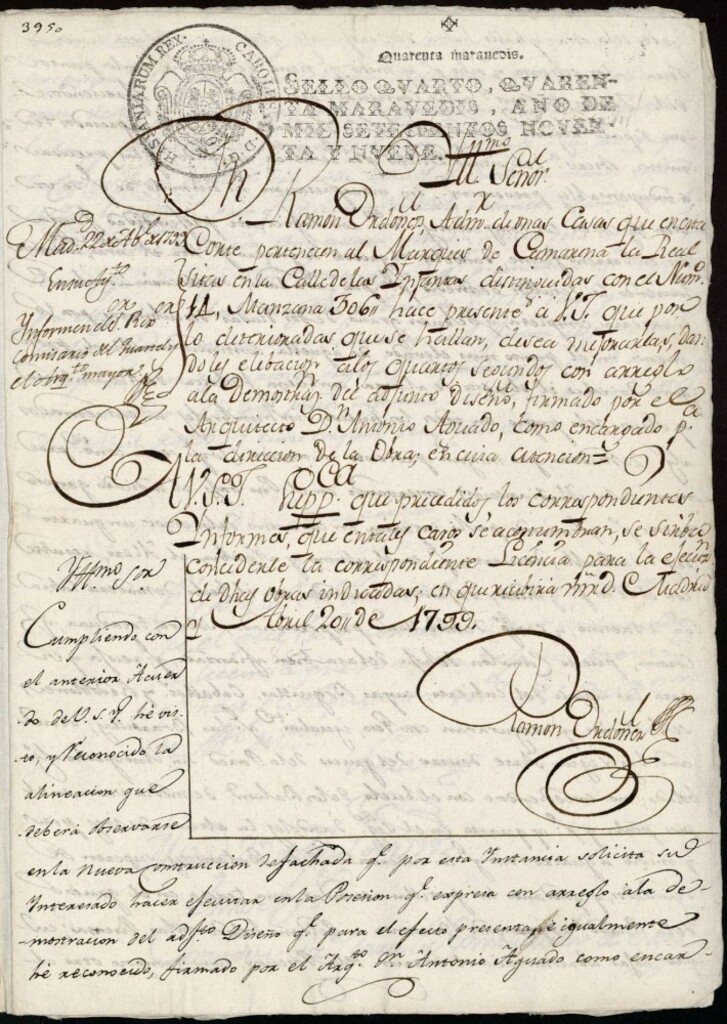 3950
HISPANIARUM REX. CAROLUS IV D. G.
Quarenta maravedis.
SELLO QVARTO, QVAREN-
TA MARAVEDIS, AÑO DE
MIL SETECIENTOS NOVEN-
TA Y NUEVE.
Yll.mo Señor
Ramon Ordoñez, Adm.r de unas Casas que en esta
Corte pertenecen al Marques de Camarena la Real
sitas en la Calle de las Ynfantas distinguidas con el Num.o
44, Manzana 306, hace presente á V.S.Y. que por
lo deterioradas que se hallan, desea mejorarlas, dan
doles elebacion a los quartos segundos con arreglo
ala Demostraz.n del adjunto diseño, firmado por el
Arquitecto D.n Antonio Aguado, como encargado p.a
la direccion de la Obra; en cuia atencion=
A V.S.Y. Supp.ca que precedidos los correspondientes
Ynformes, que en tales casos se acostumbran, se sirba
concederle la correspondiente Licencia para la ejecuz.n
de dhas obras indicadas; en que recibirá mrd. Madrid
y Abril 20,, de 1799.
Ramon Ordoñez
Mad.d 22 de Ab.l de 1799
En su Ay.to
Ynformen el S. Rex.or
Comisario del Quartel y
el Arq.to mayor
Yllmo Sor
Cumpliendo con
el anterior Acuer
do de V.S.Y. hé vis-
to, y Reconocido la
alineacion que
deberá observarse
en la nueva construccion de fachada q.e por esta Ynstancia solicita su
Ynteresado hacer ejecutar en la Posesion q.e expresa con arreglo ala de-
mostracion del adj.to Diseño q.e para el efecto presenta, é igualmente
hé reconocido, firmado por el Arq.to Dn Antonio Aguado como encar-